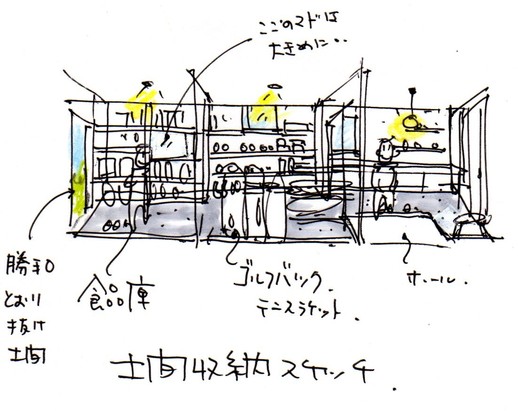 ここのマドは
大きめに・・
勝手口
とおり
抜け
土間
食品庫
ゴルフバック
テニスラケット.
ホール.
土間収納スケッチ.